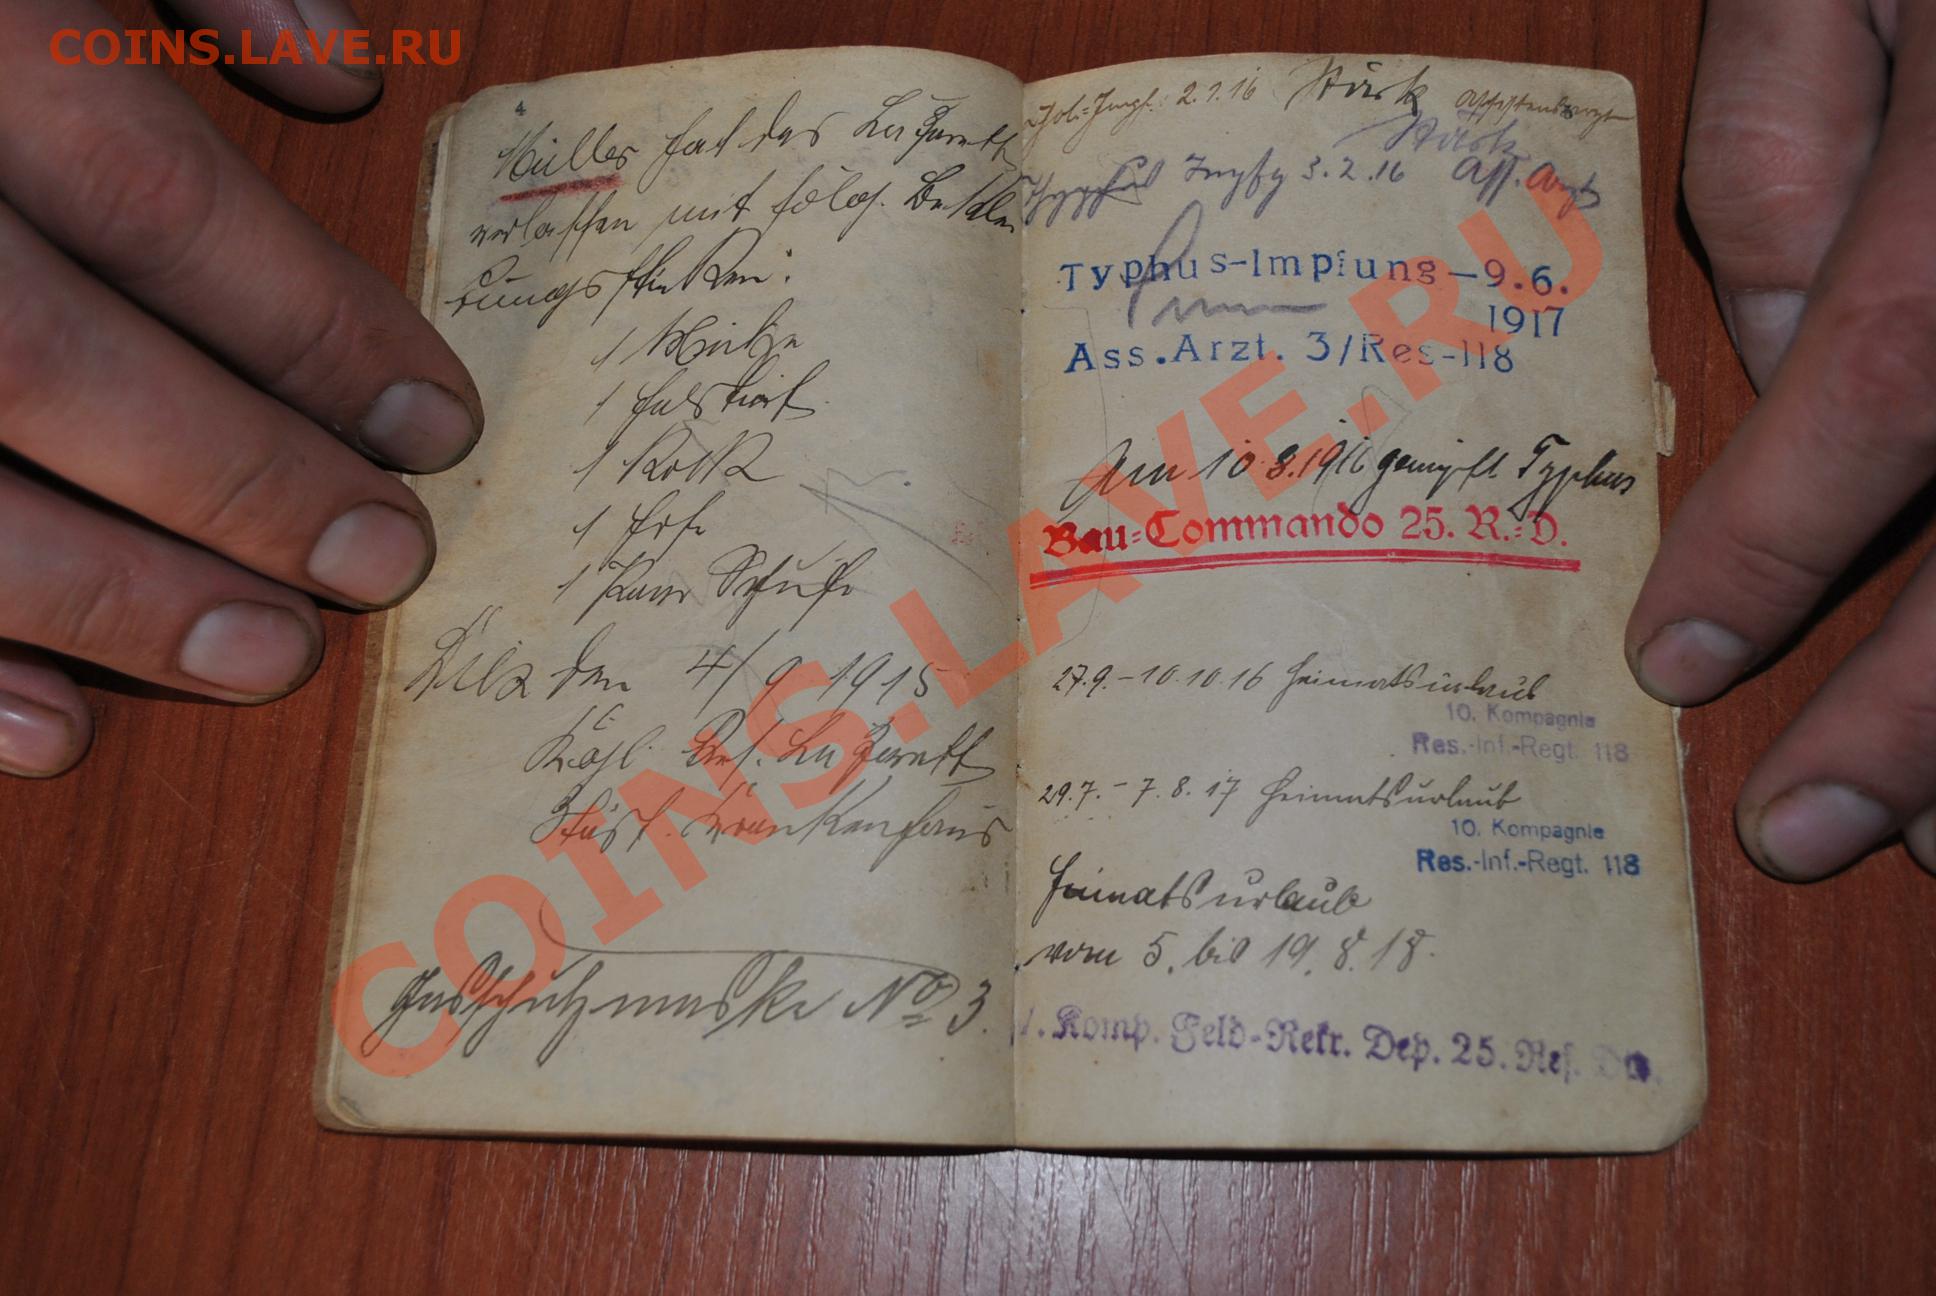 COINS.LAVE.RU
4
Müller hat das Lazarett
verlassen mit folg. Beklei
dungsstücken:
1 Mütze
1 Halstuch
1 Rock
1 Hose
1 Paar Schuhe
den 4/9 1915
Kögl. Res. Lazarett
Städt. Krankenhaus
Gasschutzmaske No 3.
Chol.-Impf. 2.1.16 Stark Assistenzarzt
Stark
Typhus Impfg 3.2.16 Ass. Arzt
Typhus-Impfung-9.6.
1917
Ass.Arzt. 3/Res-118
Am 10.8.1916 geimpft Typhus
Bau-Commando 25. R.-D.
27.9.-10.10.16 Heimatsurlaub
10. Kompagnie
Res.-Inf.-Regt. 118
29.7.-7.8.17 Heimatsurlaub
10. Kompagnie
Res.-Inf.-Regt. 118
Heimatsurlaub
vom 5. bis 19.8.18.
1. Komp. Feld-Rekr. Dep. 25. Res. Div.
COINS.LAVE.RU